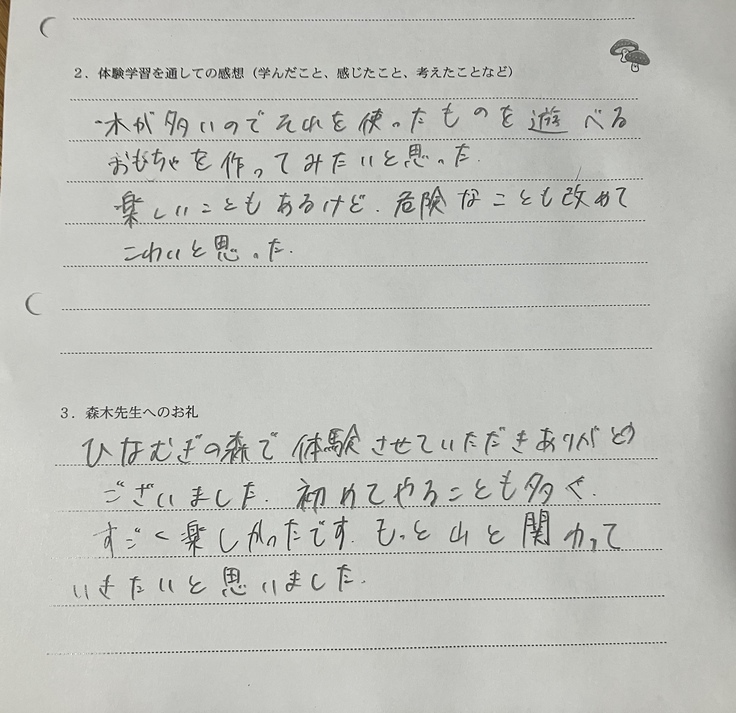 2．体験学習を通しての感想（学んだこと、感じたこと、考えたことなど）
木が多いのでそれを使ったものを遊べる
おもちゃを作ってみたいと思った.
楽しいこともあるけど.危険なことも改めて
こわいと思った.
3．森木先生へのお礼
ひなむぎの森で体験させていただきありがとう
ございました.初めてやることも多く.
すごく楽しかったです.もっと山と関わって
いきたいと思いました.